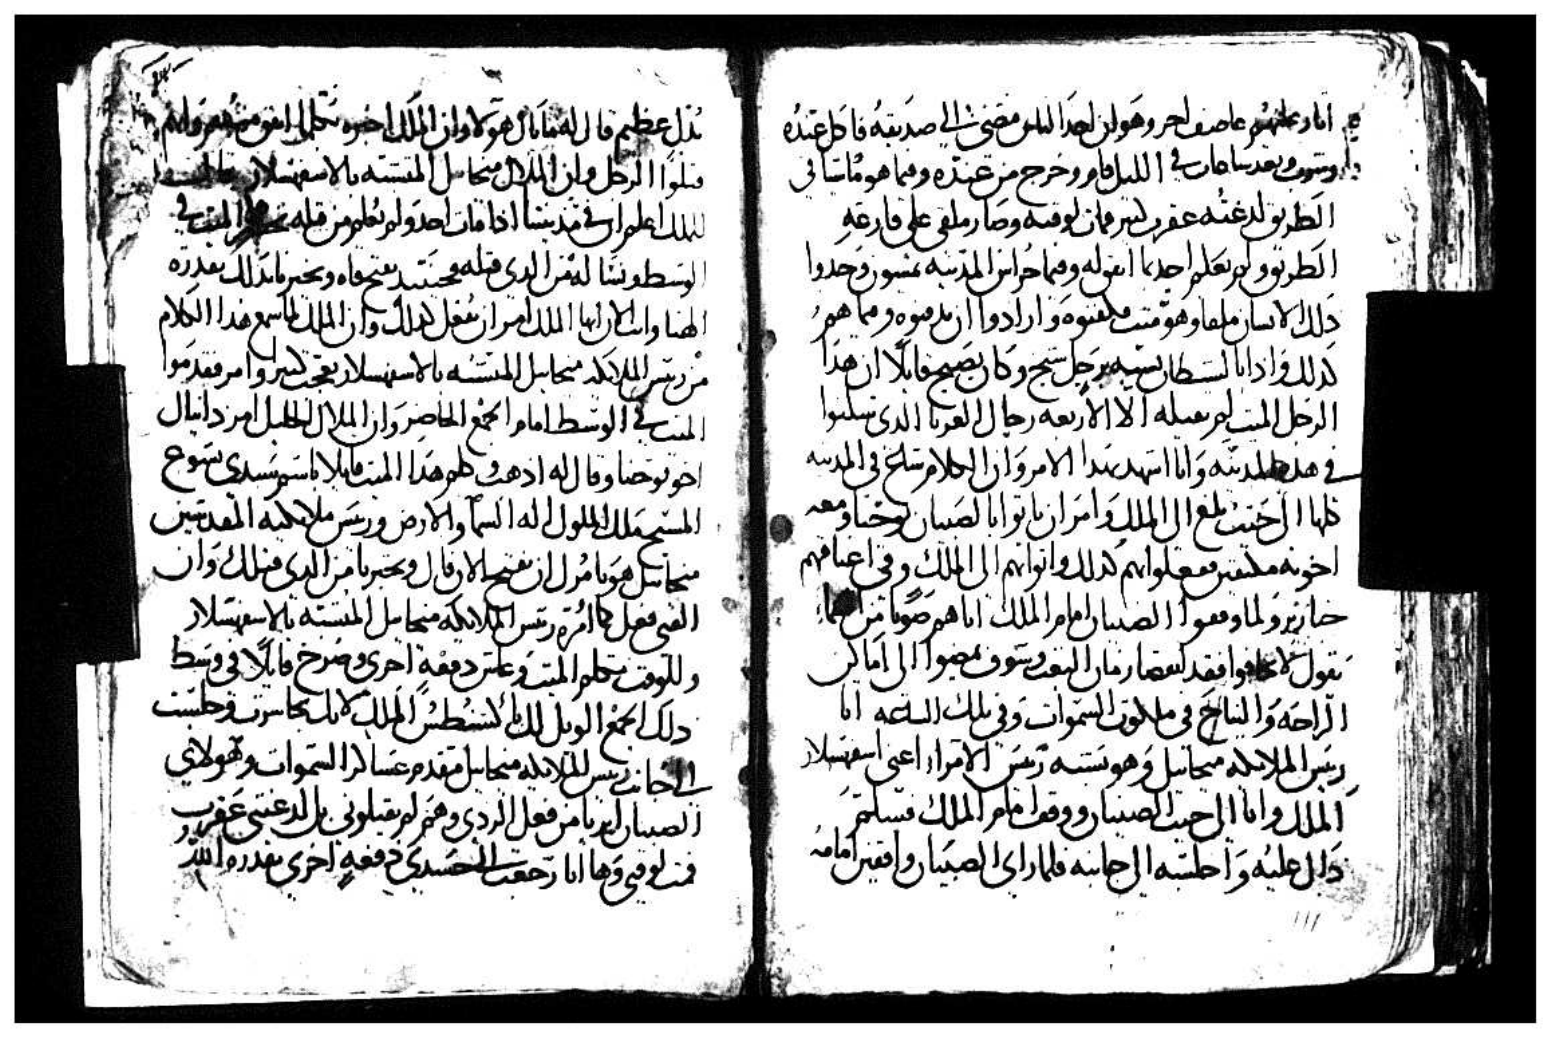 انا وعلمهم عاصف لحر وهو ان احد الناس مضى الى صديقه فاكل عنده
وبعد ساعات في الليل قام وخرج من عنده وفيما هو ماشا في
الطريق لدغته عقرب كبير فمات لوقته وصار ملقى على قارعه
الطريق ولم يعلم احد بما اقوله وفيما حراس المدينه يمشون وجدوا
ذلك الانسان ملقا وهو ميت فكفنوه وارادوا ان يدفنوه وفيما هم
كذلك واذا بالشيطان تشبه برجل شيخ وكان يصيح قايلا ان هذا
الرجل الميت لم يقتله الا الاربعه رجال الغربا الذي تسلموا
في هذه المدينه وانا اشهد بهذا الامر وان الكلام شاع في المدينه
كلها الى حيث بلغ الى الملك وامر ان ياتوا بالصبيان يوحنا ومعه
اخوته مكتفين ففعلوا بهم كذلك واتوا بهم الى الملك وفي اعناقهم
خنازير ولما وقفوا الصبيان امام الملك اتاهم صوتا من السماء
يقول لا تخافوا فقد انقضا زمان التعب وسوف تمضوا الى اماكن
الراحه والنياح في ملكوت السموات وفي تلك الساعه اتا
ريس الملايكه ميخاييل وهو يتشبه ريس الامراء اعني اسفهسلار
الملك واتا الى حيث الصبيان ووقف امام الملك فسلم
ذال عليه واجلسه الى جانبه فلما راى الصبيان واقفين امامه
بذل عظيم قال له ما بال هولاء وان الملك اخبره
قتلوا الرجل وان الملاك ميخاييل المتشبه بالاسفهسلار
للملك اعلم ان في مدينتنا اذا مات احد ولم نعلم من قتله الميت في
الوسط ونسا له من الذي قتله فحينيد يفتح فاه ويخبرنا بذلك بقدرة
الهنا وانت الان ايها الملك امر ان يفعل كذلك وان الملك لما سمع هذا الكلام
من ريس الملايكه ميخاييل المتشبه بالاسفهسلار تعجب كثير وامر فقدموا
الميت في الوسط امام الجمع الحاضر وان الملاك الجليل امر دانيال
اخو يوحنا وقال له اذهب وكلم هذا الميت قايلا باسم سيدي يسوع
المسيح ملك الملوك اله السما والارض وريس ملايكته المقدسين
ميخاييل هو يامرك ان تفتح الان قال وتخبرنا من الذي قتلك وان
الفتى فعل كما امره ريس الملايكه ميخاييل المتشبه بالاسفهسلار
وللوقت تكلم الميت وعاش دفعة اخرى وصرخ قايلا في وسط
ذلك الجمع الويل لك يا كسنطس الملك لانك تجاسرت وجلست
الى جانب ريس الملايكه ميخاييل مقدم عساكر السموات وهولاي
الصبيان ابريا من فعل الردي وهم لم يقتلوني بل لدغتني عقرب
فمت لوقتي وها انا رجعت الى جسدي دفعه اخرى بقدره الله